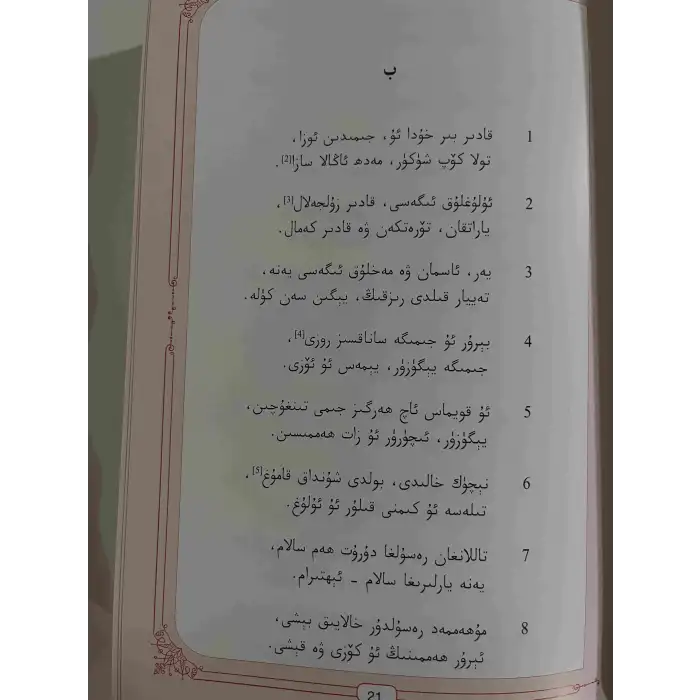 ب
1 قادىر بىر خۇدا ئۇ، جىمىدىن ئوزا،
تولا كۆپ شۈكۈر، مەدھ ئاڭالا سازا[2].
2 ئۇلۇغلۇق ئىگەسى، قادىر زۇلجەلال[3]،
ياراتقان، تۆرەتكەن ۋە قادىر كەمال.
3 يەر، ئاسمان ۋە مەخلۇق ئىگەسى يەنە،
تەييار قىلدى رىزقىڭ، يېگىن سەن كۈلە.
4 بېرۇر ئۇ جىمىگە ساناقسىز روزى[4]،
جىمىگە يېگۈزۈر، يېمەس ئۇ ئۆزى.
5 ئۇ قويماس ئاچ ھەرگىز جىمى تىنغۇچىن،
يېگۈزۈر، ئىچۈرۈر ئۇ زات ھەممىسىن.
6 نېچۈك خالىدى، بولدى شۇنداق قامۇغ[5]،
تىلەسە ئۇ كىمنى قىلۇر ئۇ ئۇلۇغ.
7 تاللانغان رەسۇلغا دۇرۇت ھەم سالام،
يەنە يارلىرىغا سالام - ئېھتىرام.
8 مۇھەممەد رەسۇلدۇر خالايىق بېشى،
ئېرۇر ھەممىنىڭ ئۇ كۆزى ۋە قېشى.
21